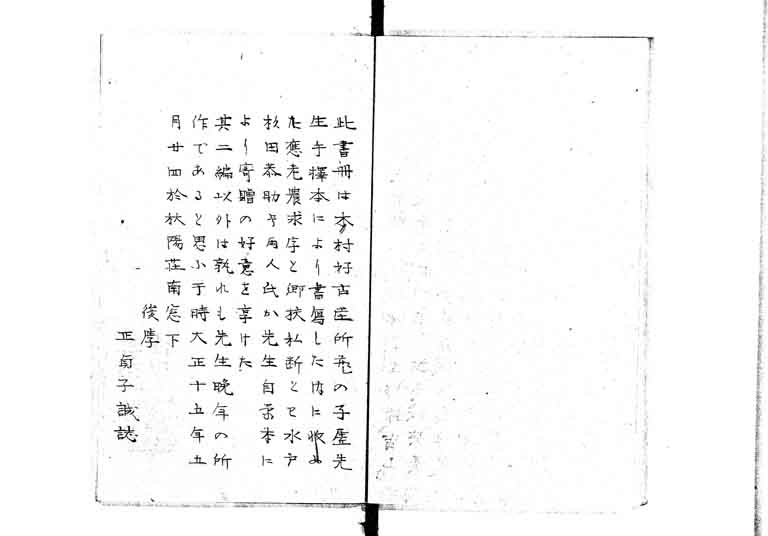 此書冊は本村好古堂所蔵の子虚先
生手擇本により書写した内に收め
た應老農求字と郷校私断とを水戸
杉田恭助や両人氏か先生自筆本に
より寄贈の好意を享けた
其二編以外は孰れも先生晩年の所
作であると思ふ于時大正十五年五
月廿四於秋陽荘南窓下
後学
正貞子誠誌